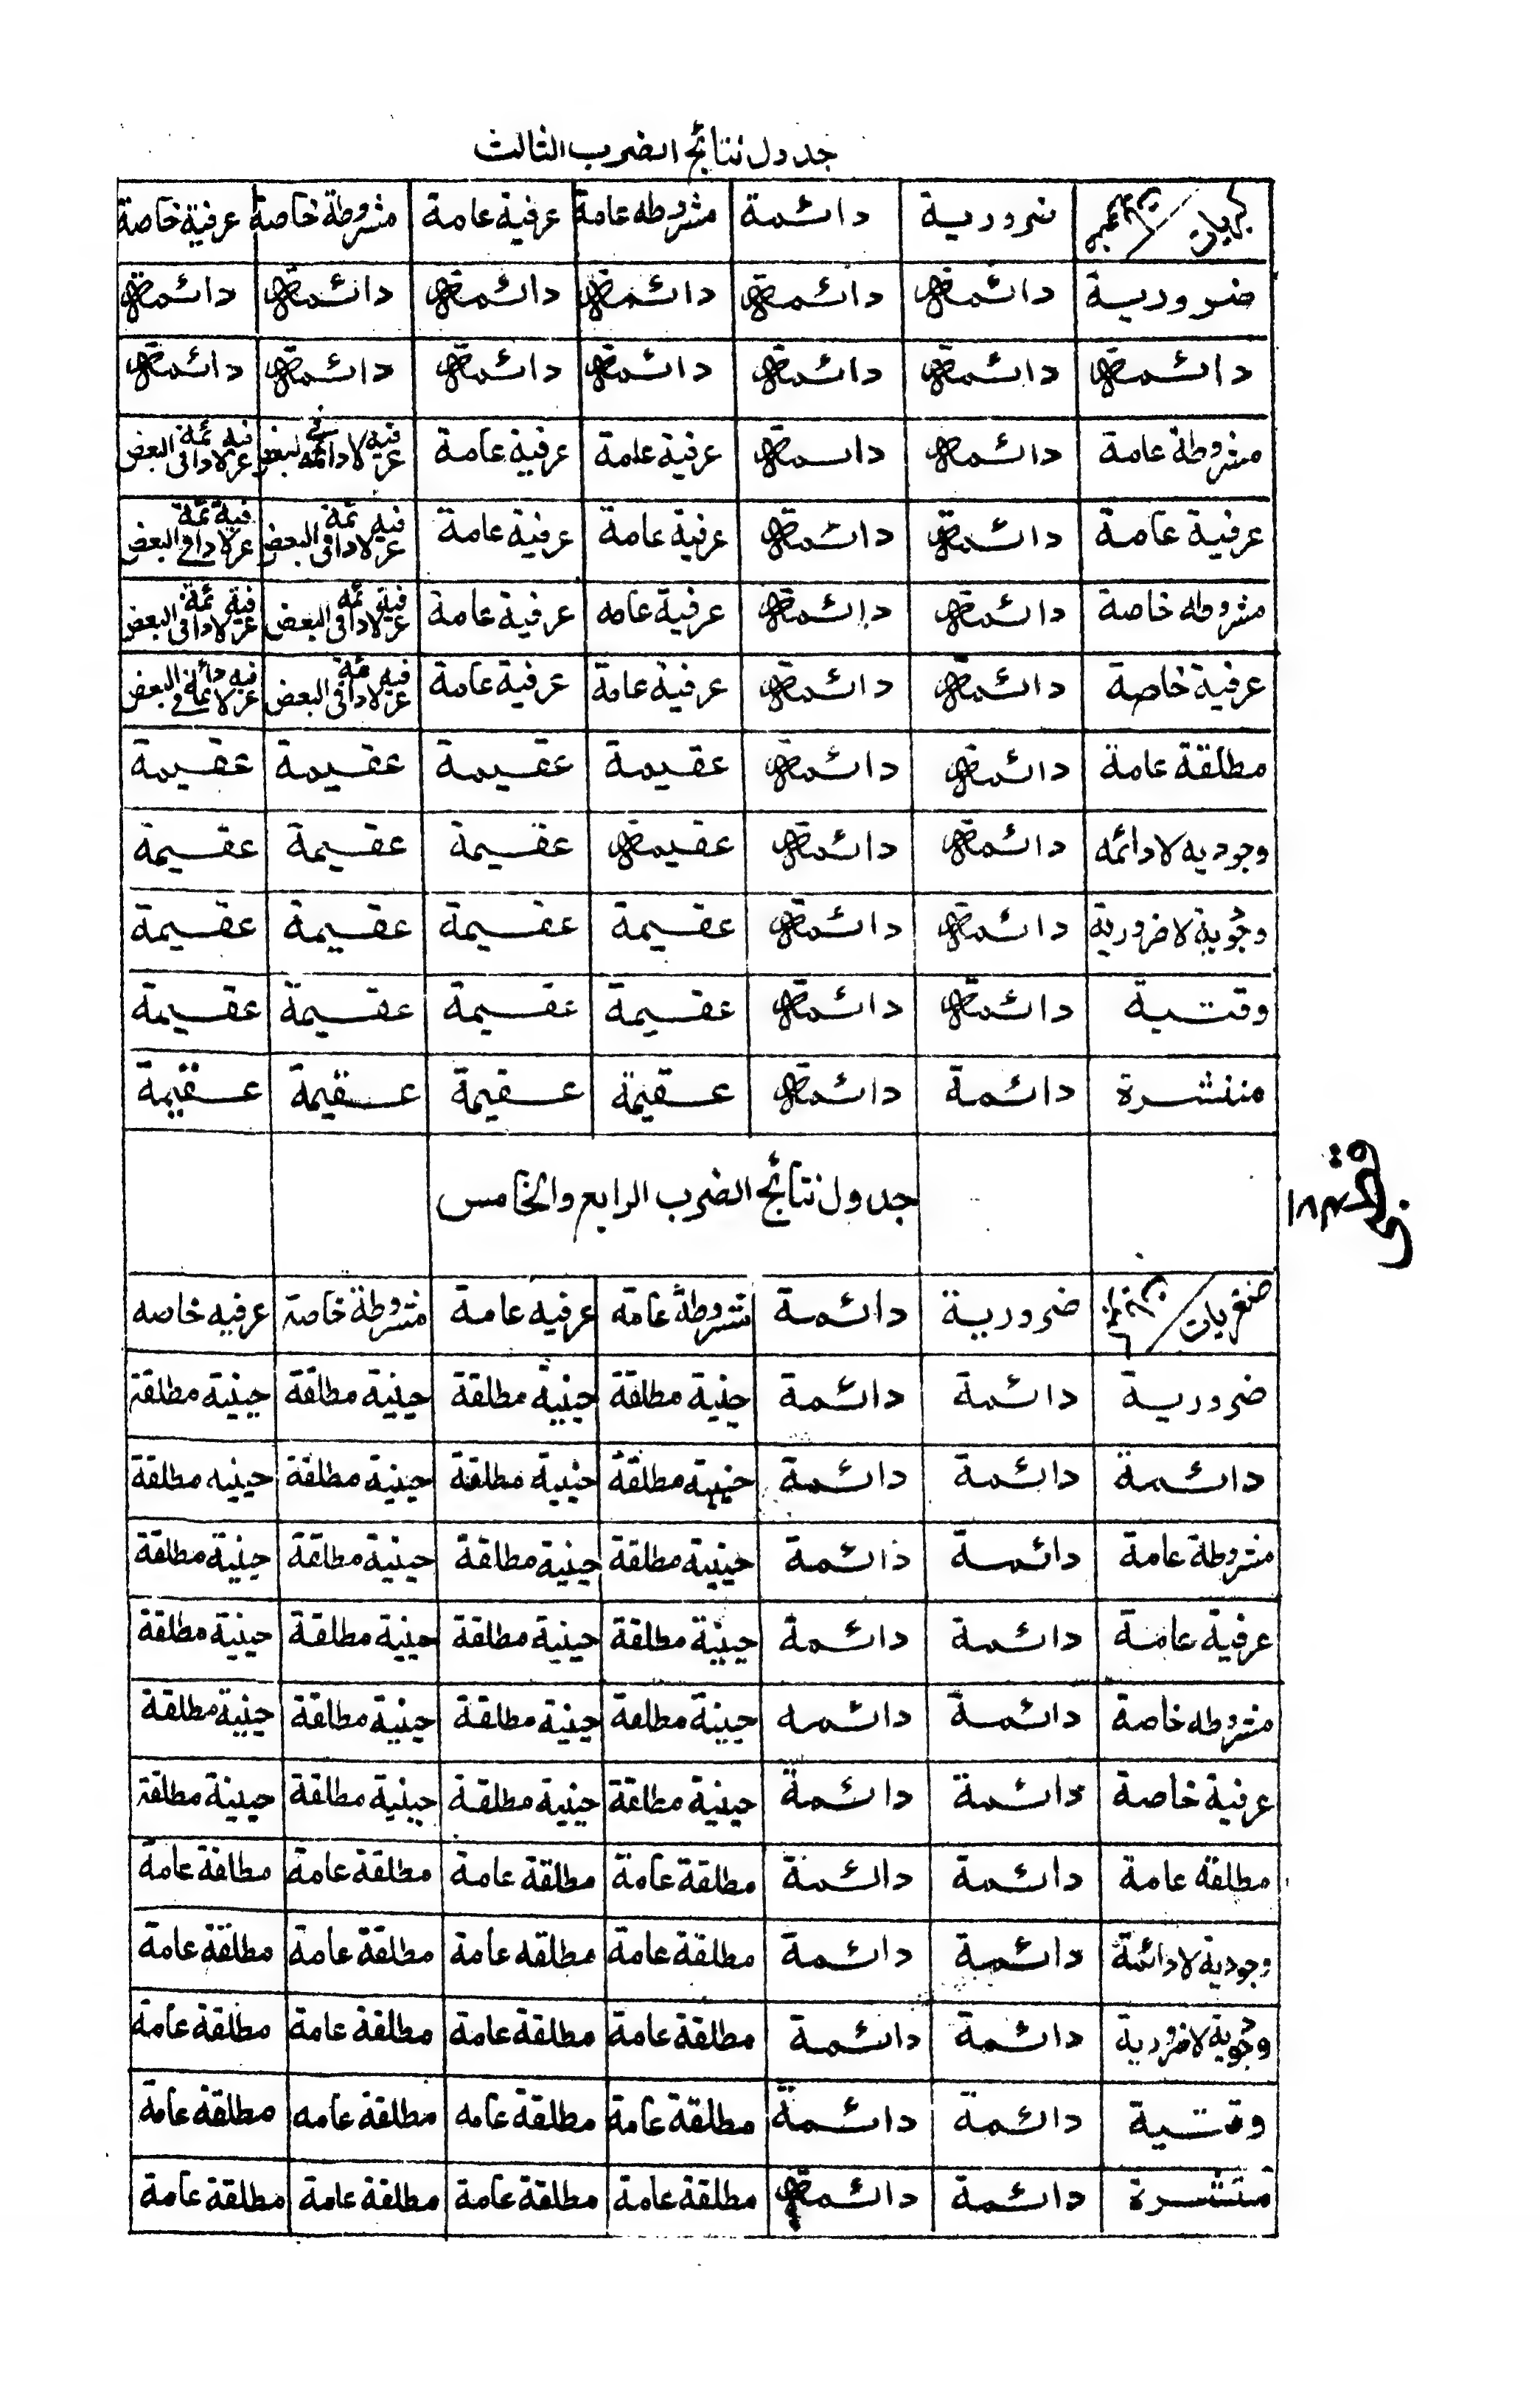 جدول نتائج الضرب الثالث
كبريات ضرورية دائمة مشروطه عامة عرفية عامة مشروطة خاصة عرفية خاصة
ضرورية دائمة دائمة دائمة دائمة دائمة دائمة
دائمة دائمة دائمة دائمة دائمة دائمة دائمة
مشروطة عامة دائمة دائمة عرفية عامة عرفية عامة عرفية لادائمة فى البعض عرفية لادائمة فى البعض
عرفية عامة دائمة دائمة عرفية عامة عرفية عامة عرفية لادائمة فى البعض عرفية لادائمة فى البعض
مشروطه خاصة دائمة دائمة عرفية عامه عرفية عامة عرفية لادائمه فى البعض عرفية لادائمة فى البعض
عرفية خاصة دائمة دائمة عرفية عامة عرفية عامة عرفيه لادائمة فى البعض عرفيه لادائمة فى البعض
مطلقة عامة دائمة دائمة عقيمة عقيمة عقيمة عقيمة
وجوديه لادائمه دائمة دائمة عقيمة عقيمة عقيمة عقيمة
وجودية لاضرورية دائمة دائمة عقيمة عقيمة عقيمة عقيمة
وقتية دائمة دائمة عقيمة عقيمة عقيمة عقيمة
منتشرة دائمة دائمة عقيمة عقيمة عقيمة عقيمة
جدول نتائج الضرب الرابع والخامس
صغريات ضرورية دائمة مشروطة عامة عرفيه عامة مشروطة خاصة عرفيه خاصه
ضرورية دائمة دائمة حينية مطلقة حينية مطلقة حينية مطلقة حينية مطلقة
دائمة دائمة دائمة حينية مطلقة حينية مطلقة حينية مطلقة حينيه مطلقة
مشروطة عامة دائمة دائمة حينية مطلقة حينية مطلقة حينية مطلقة حينية مطلقة
عرفية عامة دائمة دائمة حينية مطلقة حينية مطلقة حينية مطلقة حينية مطلقة
مشروطه خاصة دائمة دائمه حينية مطلقة حينية مطلقة حينية مطلقة حينية مطلقة
عرفية خاصة دائمة دائمة حينية مطلقة حينية مطلقة حينية مطلقة حينية مطلقة
مطلقة عامة دائمة دائمة مطلقة عامة مطلقة عامة مطلقة عامة مطلقة عامة
وجودية لادائمة دائمة دائمة مطلقة عامة مطلقه عامة مطلقة عامة مطلقة عامة
وجودية لاضرورية دائمة دائمة مطلقة عامة مطلقة عامة مطلقة عامة مطلقة عامة
وقتية دائمة دائمة مطلقة عامة مطلقة عامه مطلقة عامه مطلقة عامة
منتشرة دائمة دائمة مطلقة عامة مطلقة عامة مطلقة عامة مطلقة عامة